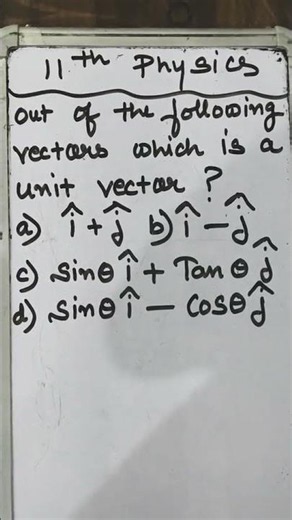 11th Physics
out of the following
vectors which is a
unit vector ?
a) î + ĵ b) î − ĵ
c) sinθ î + Tanθ ĵ
d) sinθ î − cosθ ĵ